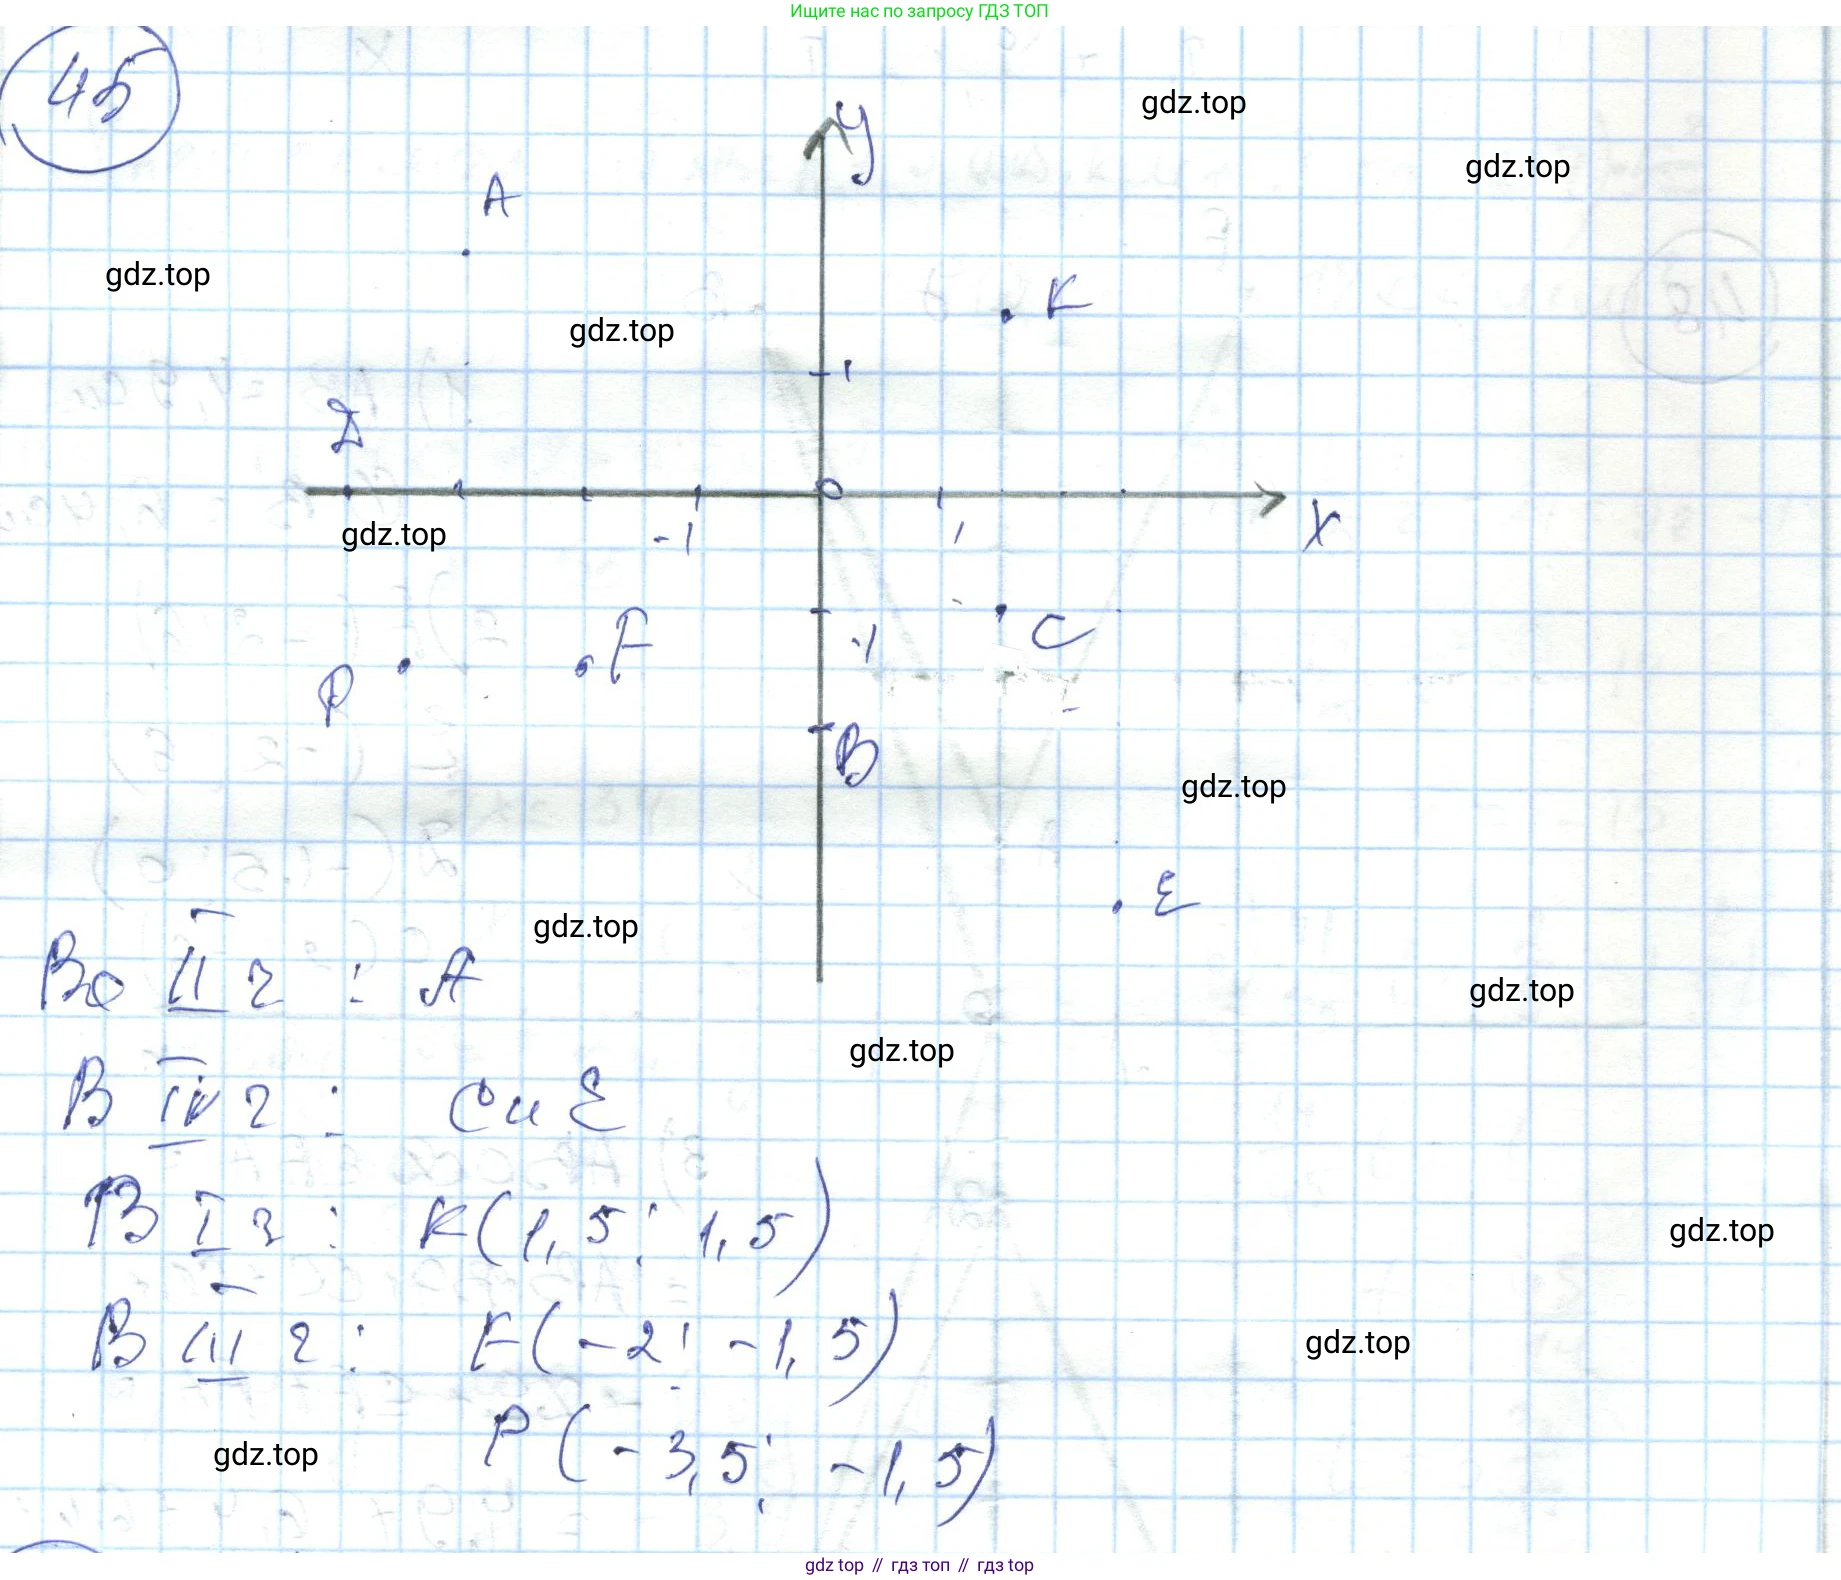 Ищите нас по запросу ГДЗ ТОП
45
gdz.top
У
gdz.top
А
gdz.top
К
gdz.top
1
Д
0
gdz.top
-1
1
Х
Р
F
-1
С
В
gdz.top
Е
gdz.top
Во II ч : А
gdz.top
gdz.top
В IV ч : С и Е
В I ч : К(1,5; 1,5)
gdz.top
В III ч : F(-2; -1,5)
gdz.top
Р(-3,5; -1,5)
gdz.top
gdz top // гдз топ // гдз top